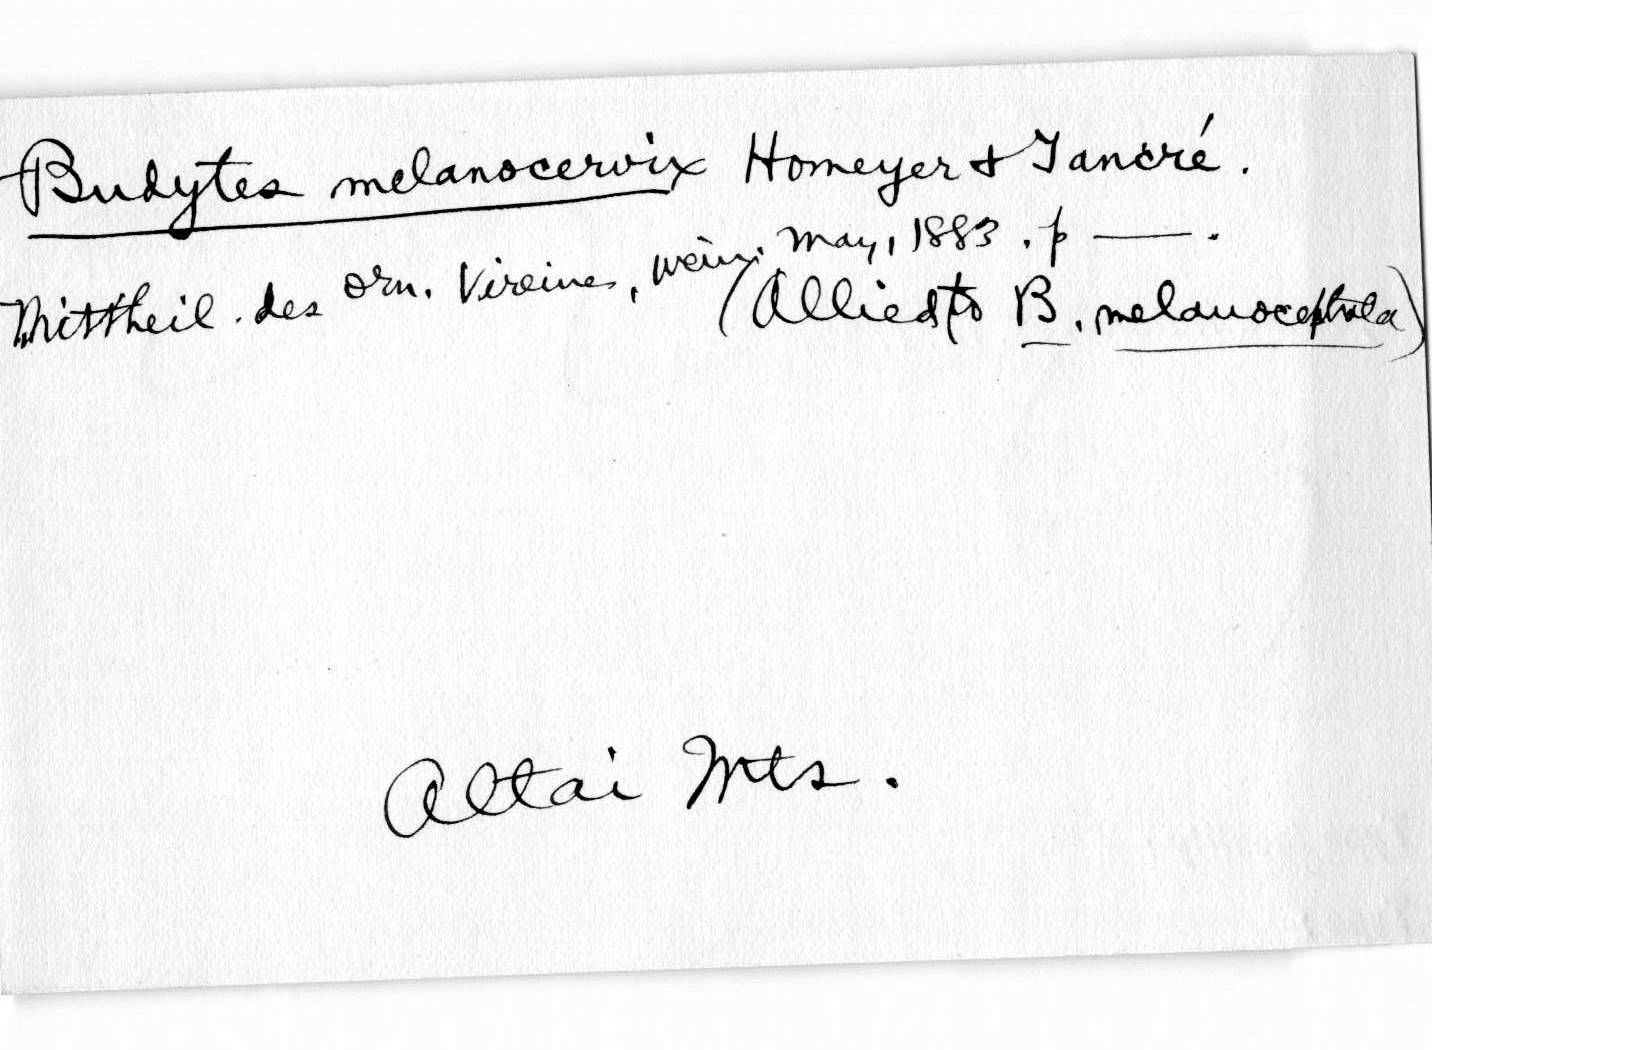 Budytes melanocervix Homeyer & Tancré.
Mittheil. des orn. Vereines, Wein, May, 1883. p —.
(Allied to B. melanocephala)
Altai Mts.